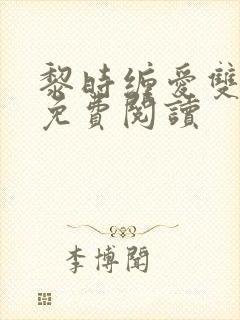 黎時缠愛雙
免費閱讀
李博聞